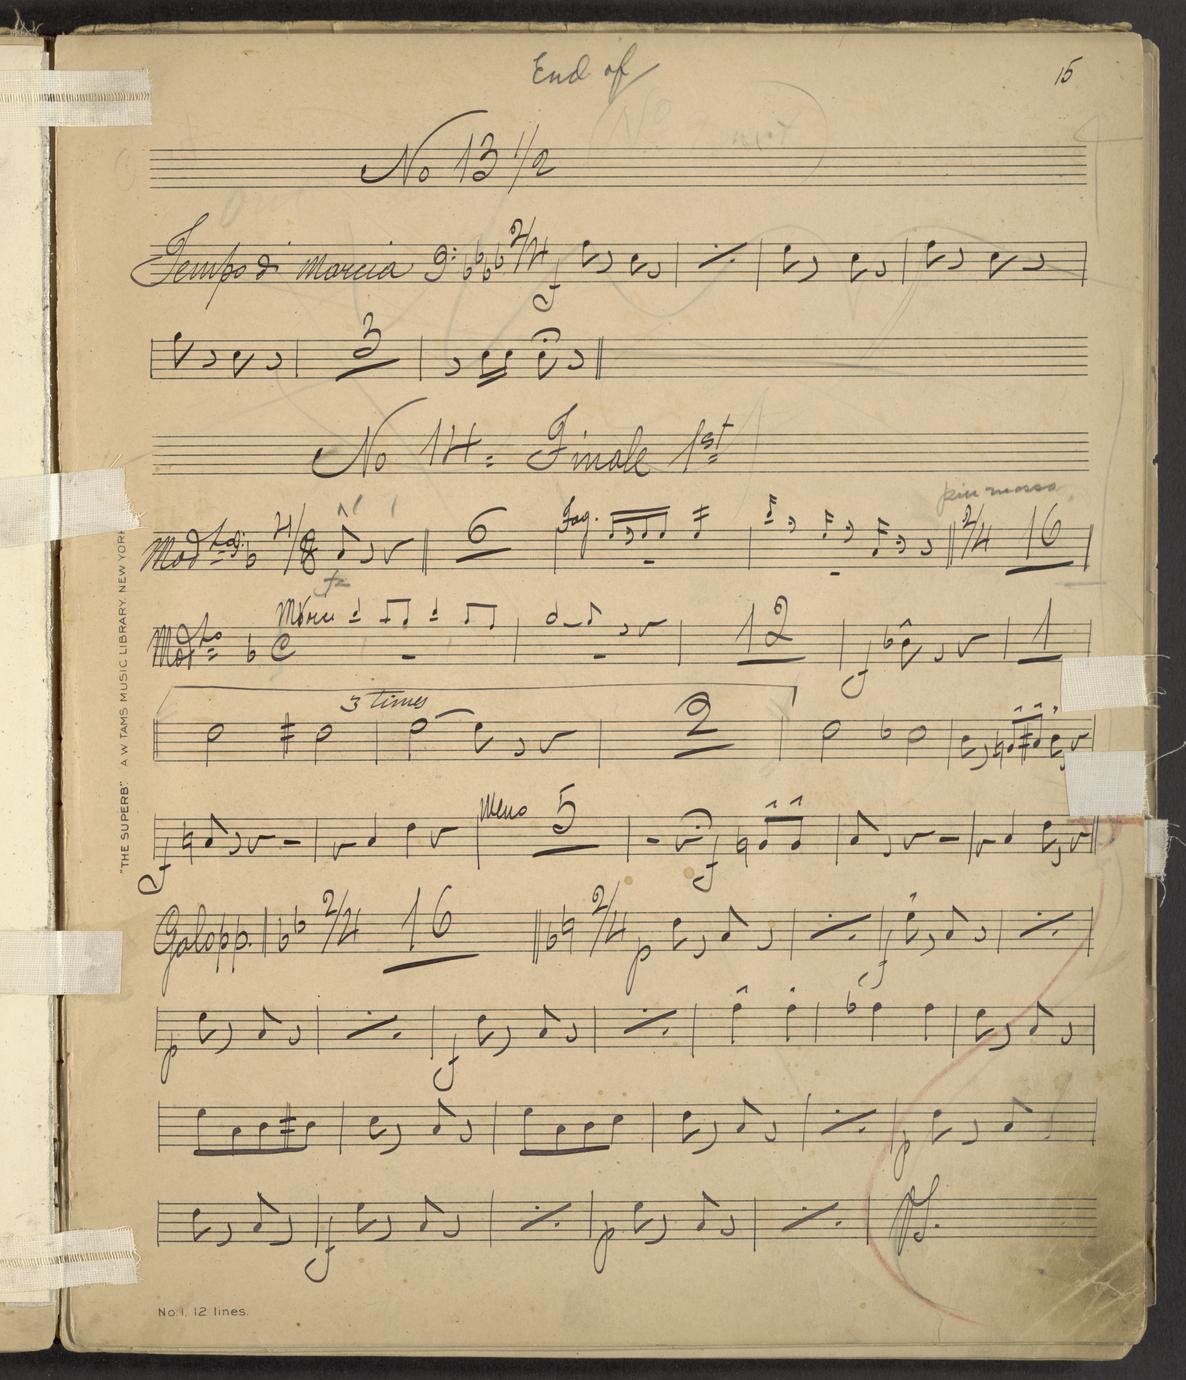 End of
15
No 13 1/2
Tempo di Marcia 2/4 f
3
No 14 = Finale 1st
piu mosso
Modto 4/8 6 Fag. 2/4 16
fz
Modto C 12 f 1
3 times
2
Meno
f 5 f
Galopp. 2/4 16 2/4 p f
p f
p
f p VS.
"THE SUPERB." A W TAMS MUSIC LIBRARY, NEW YORK
No. 1. 12 lines.